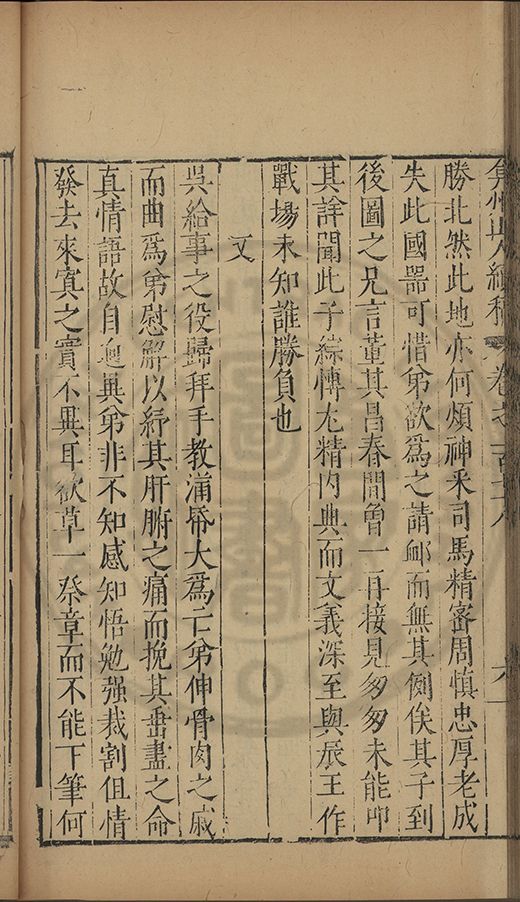 弇州山人續稿 卷之一百六十八 六
勝北然此地亦何煩神釆司馬精密周慎忠厚老成
失此國噐可惜弟欲爲之請郵而無其例俟其子到
後圖之兄言董其昌春間曾一再接見匆匆未能叩
其詳聞此子綜博尢精内典而文義深至與辰玉作
戰塲未知誰勝負也
又
吳給事之役歸拜手教滿帋大爲亡弟伸骨肉之戚
而曲爲弟慰解以紓其肝腑之痛而挽其垂盡之命
真情語故自逈異弟非不知感知悟勉强裁割但情
發去來寘之實不異耳欲草一祭章而不能下筆何